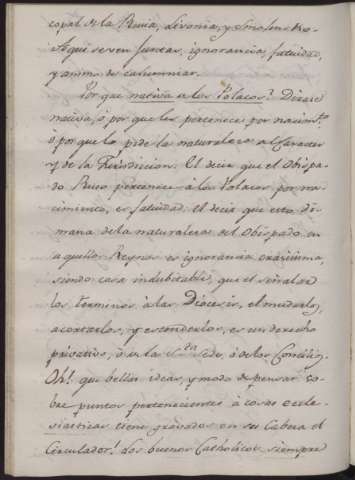 copal de la Rusia, Livonia, y Smolensko.
Aqui se ven juntas, ignorancia, fatuidad,
y animo de calumniar.
Por que nativa a los Polacos? Dirase
nativa, ó por que les pertenece por nacim.to
ó por que lo pide la naturaleza, el Caracter
y de la Jurisdicion. El decir que el Obispa-
do Ruso pertenece à los Polacos por na-
cimiento, es fatuidad. El decir que esto di-
mana de la naturaleza del Obispado en
aquellos Reynos es ignorancia crasisima,
siendo cosa indubitable, que el señalar
los terminos à las Diocesis, el mudarlos,
acortarlos, y estenderlos, es un derecho
privativo, ó de la S.ta Sede, ó de los Concilios.
Oh! que bellas ideas, y modo de pensar so-
bre puntos pertenecientes à cosas eccle-
siasticas tiene gravados en su Cabeza el
Circulador! Los buenos Catholicos siempre